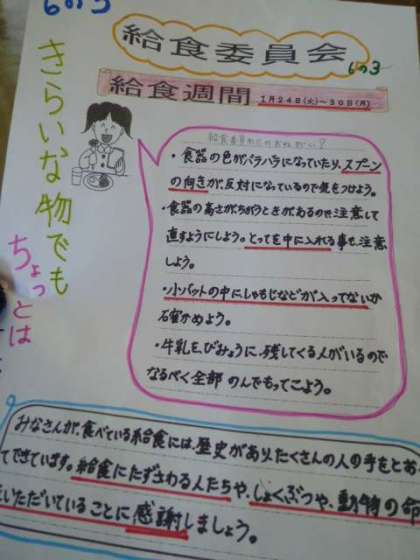 6の3
給食委員会
6の3
給食週間
1月24日(火)~30日(月)
きらいな物でも
ちょっとは
・食器の色がバラバラになっていたり、スプーン
の向きが反対になっているので気をつけよう。
・食器の高さがちがうときがあるので注意して
直すようにしよう。とってを中に入れる事も注意
しよう。
・小バットの中にしゃもじなどが入ってないか
確かめよう。
・牛乳をびみょうに残してくる人がいるので
なるべく全部のんでもってこよう。
みなさんが食べている給食には、歴史がありたくさんの人の手をとお
てできています。給食にたずさわる人たちや、しょくぶつや、動物の命
をいただいていることに感謝しましょう。